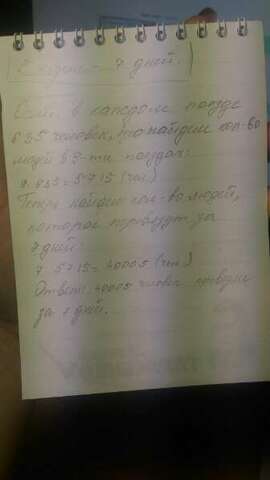 7 дней.
Если в каждом поезде
835 человек, то найдём кол-во
людей в 7-ми поездах:
= 5715 (чел)
Теперь найдём кол-во людей,
которое перевезут за
7 дней:
7 5715 = 40005 (чел)
Ответ: 40005 человек
за 7 дней.